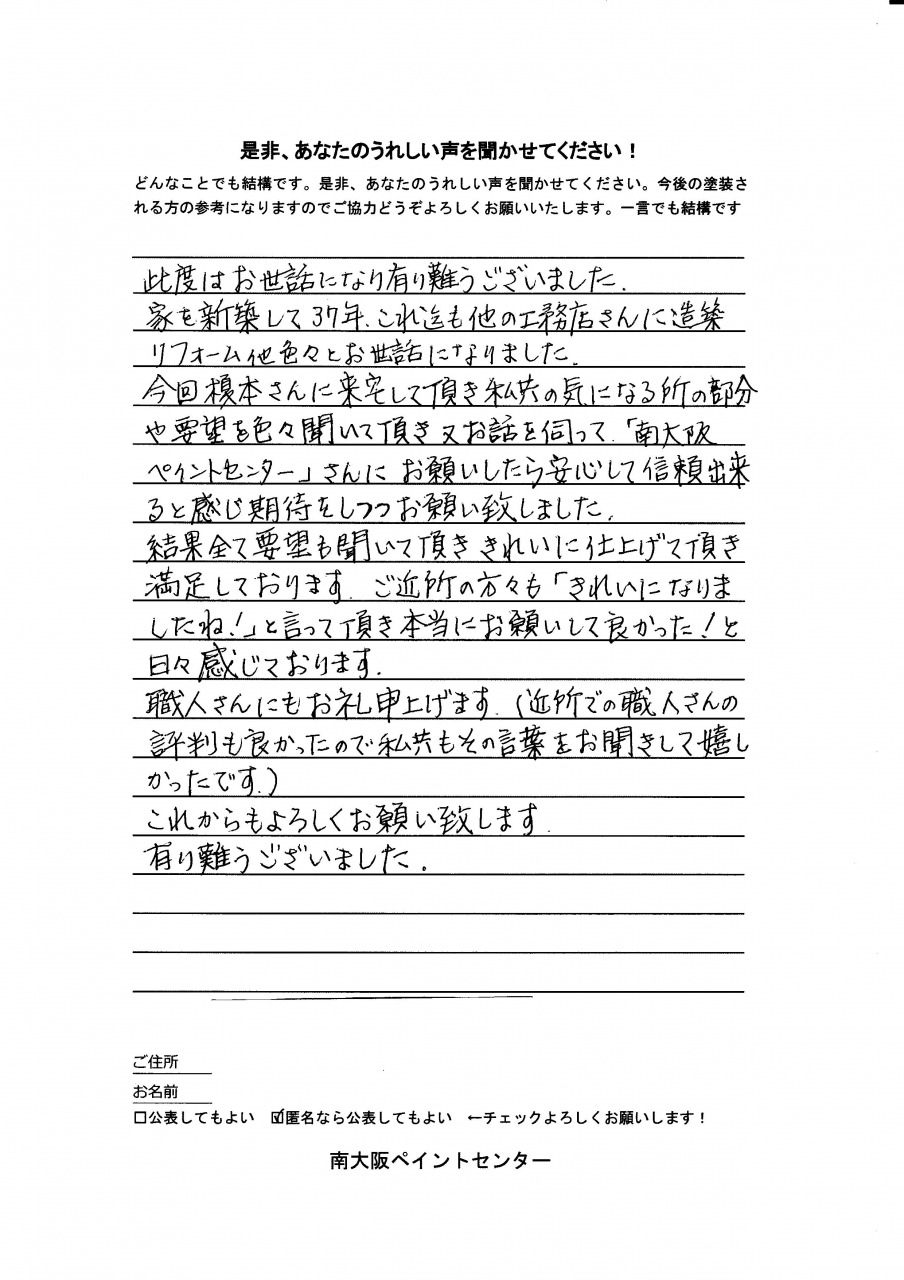 是非、あなたのうれしい声を聞かせてください！
どんなことでも結構です。是非、あなたのうれしい声を聞かせてください。今後の塗装さ
れる方の参考になりますのでご協力どうぞよろしくお願いいたします。一言でも結構です
此度はお世話になり有り難うございました.
家を新築して37年、これ迄も他の工務店さんに造築
リフォーム他色々とお世話になりました.
今回榎本さんに来宅して頂き私共の気になる所の部分
や要望を色々聞いて頂き又お話を伺って、「南大阪
ペイントセンター」さんに お願いしたら安心して信頼出来
ると感じ期待をしつつお願い致しました.
結果全て要望も聞いて頂き きれいに仕上げて頂き
満足しております. ご近所の方々も「きれいになりま
したね!」と言って頂き本当にお願いして良かった!と
日々感じております.
職人さんにもお礼申上げます.(近所での職人さんの
評判も良かったので私共もその言葉をお聞きして嬉し
かったです.)
これからもよろしくお願い致します.
有り難うございました.
ご住所
お名前
□公表してもよい ☑匿名なら公表してもよい ←チェックよろしくお願いします！
南大阪ペイントセンター